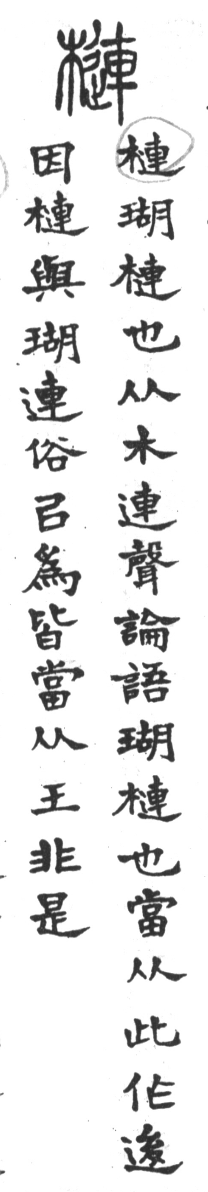 槤
槤瑚槤也从木連聲論語瑚槤也當从此作後
因槤與瑚連俗㠯為皆當从王非是